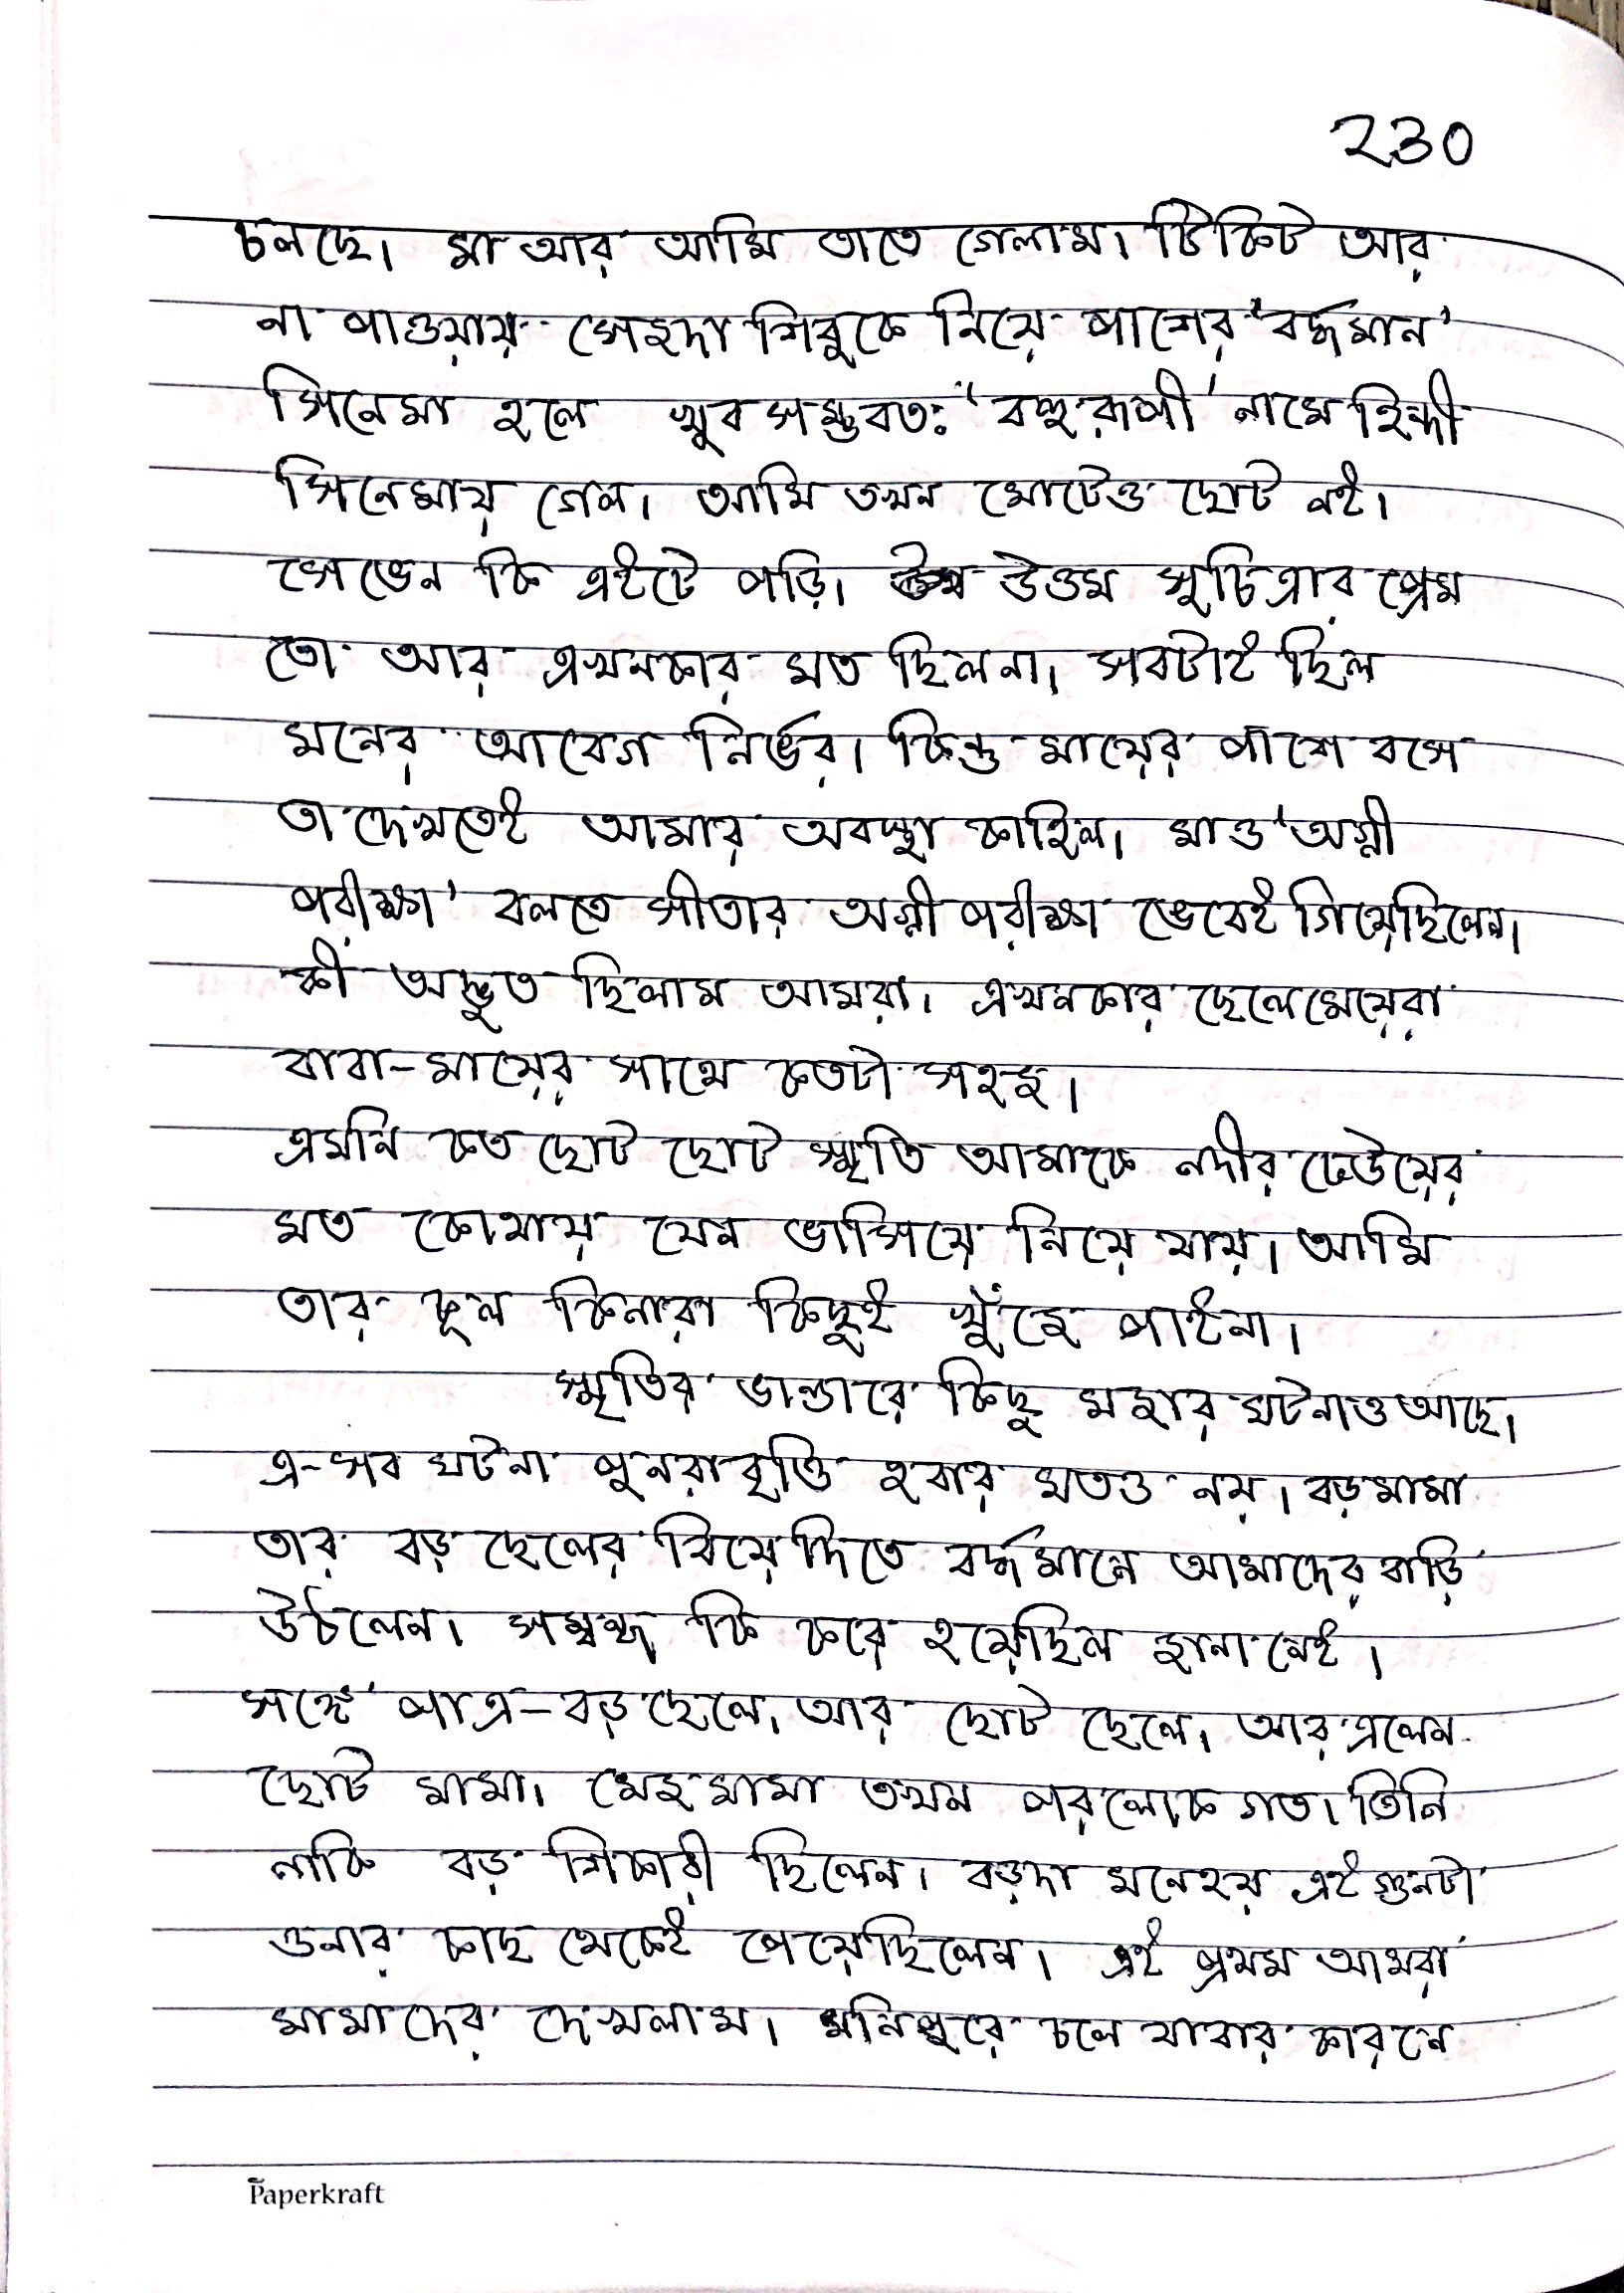 230
চলছে। মা আর আমি তাতে গেলাম। টিকিট আর
না পাওয়ায় সেজদা শিবুকে নিয়ে পাশের 'বর্দ্ধমান'
সিনেমা হলে খুব সম্ভবতঃ 'বহুরূপী' নামে হিন্দী
সিনেমায় গেল। আমি তখন মোটেও ছোট নই।
সেভেন কি এইটে পড়ি। উত্তম সুচিত্রার প্রেম
তো আর এখনকার মত ছিলনা। সবটাই ছিল
মনের আবেগ নির্ভর। কিন্তু মায়ের পাশে বসে
তা দেখতেই আমার অবস্থা কাহিল। মাও 'অগ্নী
পরীক্ষা' বলতে সীতার অগ্নী পরীক্ষা ভেবেই গিয়েছিলেন।
কী অদ্ভুত ছিলাম আমরা। এখনকার ছেলেমেয়েরা
বাবা-মায়ের সাথে কতটা সহজ।
এমনি কত ছোট ছোট স্মৃতি আমাকে নদীর ঢেউয়ের
মত কোথায় যেন ভাসিয়ে নিয়ে যায়। আমি
তার কূল কিনারা কিছুই খুঁজে পাইনা।
স্মৃতির ভান্ডারে কিছু মজার ঘটনাও আছে।
এ-সব ঘটনা পুনরাবৃত্তি হবার মতও নয়। বড়মামা
তার বড় ছেলের বিয়ে দিতে বর্দ্ধমানে আমাদের বাড়ি
উঠলেন। সম্বন্ধ কি করে হয়েছিল জানা নেই।
সঙ্গে পাত্র-বড়ছেলে, আর ছোট ছেলে। আর এলেন
ছোট মামা। মেজমামা তখন পরলোক গত। তিনি
নাকি বড় শিকারী ছিলেন। বড়দা মনেহয় এই গুনটা
ওনার কাছ থেকেই পেয়েছিলেন। এই প্রথম আমরা
মামাদের দেখলাম। মনিপুরে চলে যাবার কারনে
Paperkraft